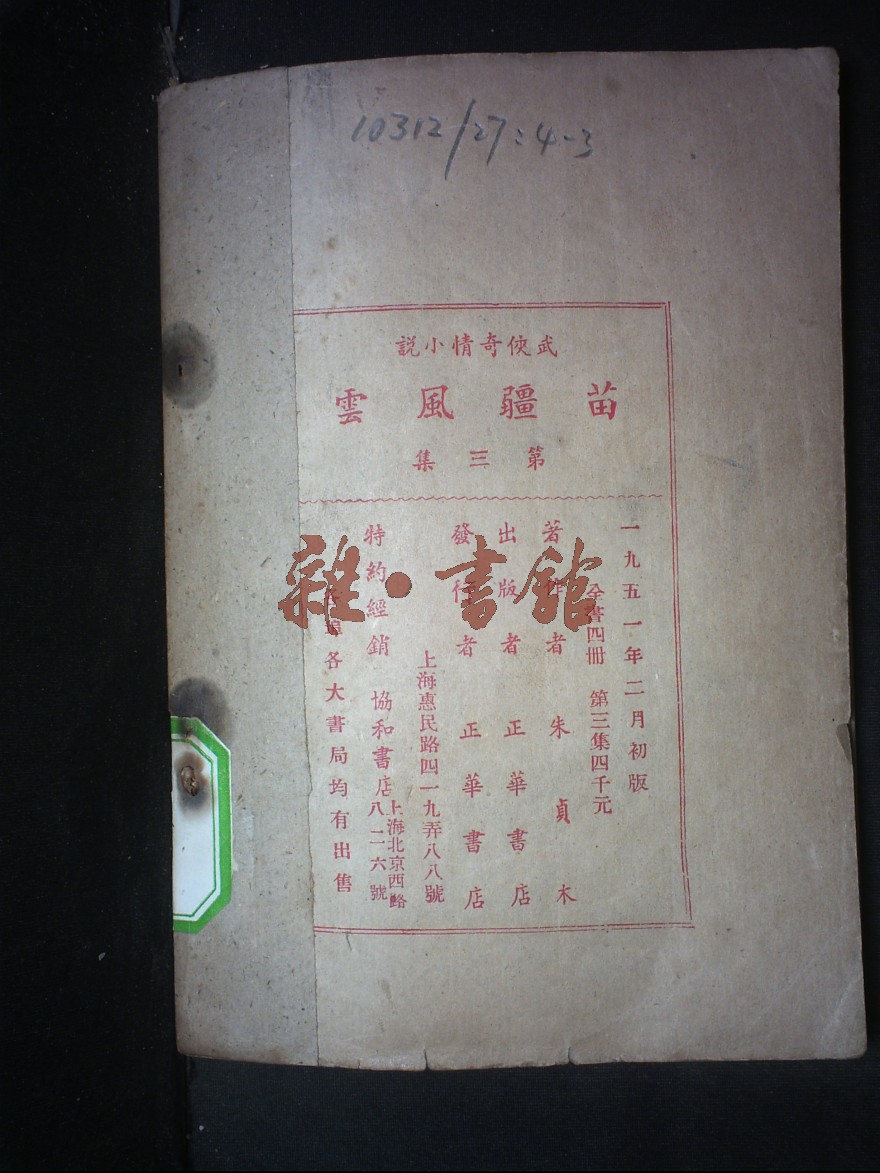 10312/27:4-3
武俠奇情小說
苗疆風雲
第三集
一九五一年二月初版
全書四冊 第三集四千元
著作者 朱貞木
出版者 正華書店
發行者 正華書店
上海惠民路四一九弄八八號
特約經銷 協和書店
上海北京西路
八二六號
埠各大書局均有出售
雜·書館